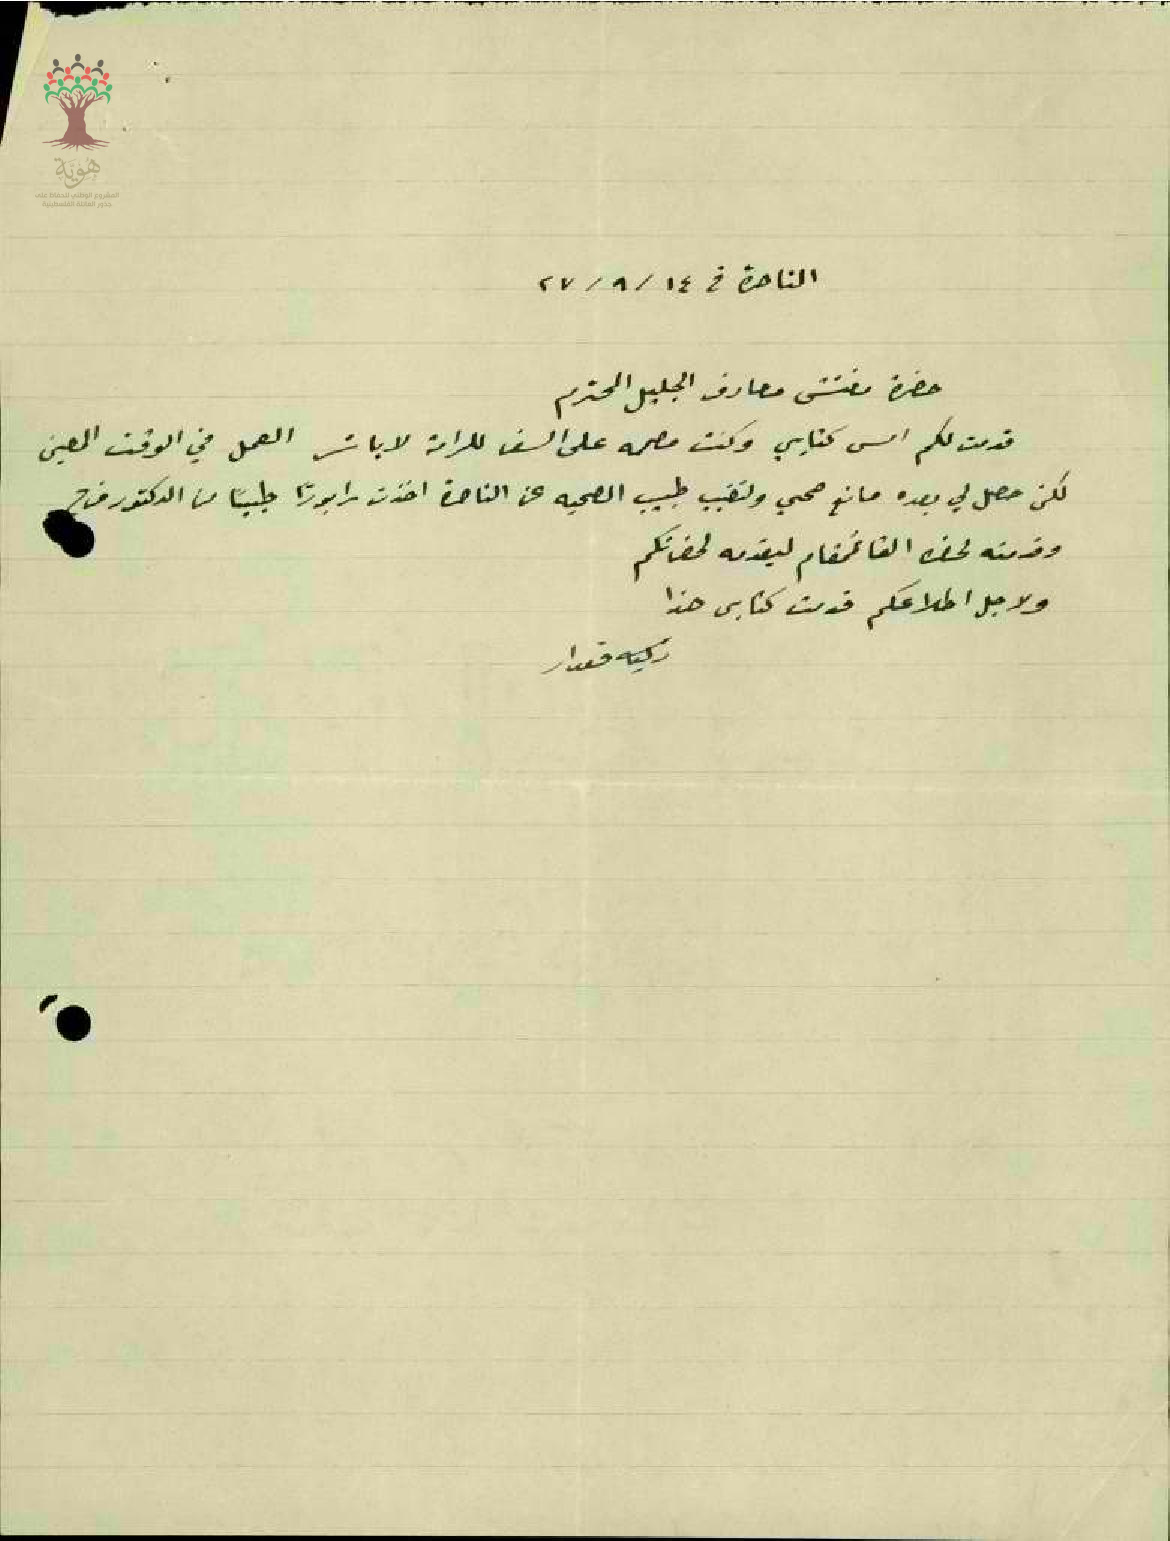 هوية
المشروع الوطني للحفاظ على
جذور العائلة الفلسطينية
الناصرة في ١٤/٩/٢٧
حضرة مفتش معارف الجليل المحترم
قدمت لكم امس كتابي وكنت مصممه على السفر للرامة لاباشر العمل في الوقت المعين
لكن حصل لي بعده مانع صحي ولتغيب طبيب الصحيه عن الناصرة اخذت رابورتا طبيبا من الدكتور
وقدمته لحضرة القائمقام ليقدمه لحضرتكم
ولاجل اطلاعكم قدمت كتابي هذا
زكيه قعوار